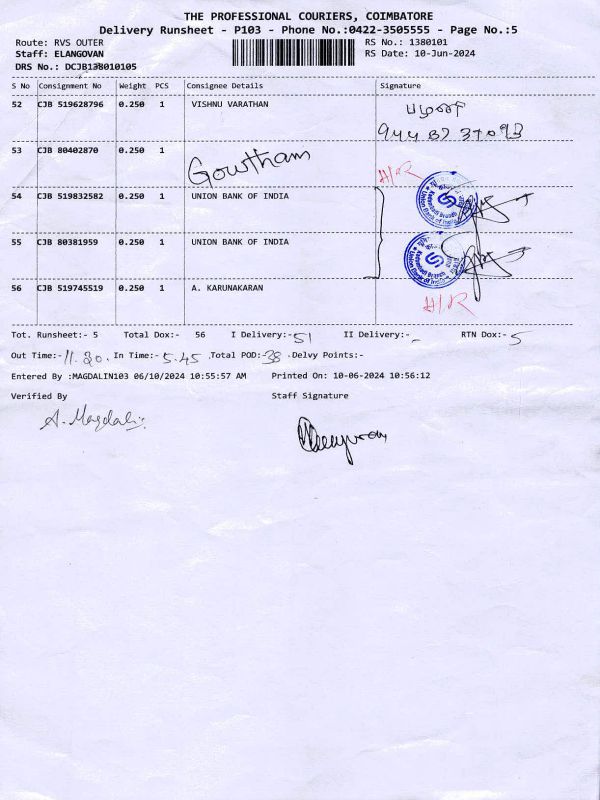 THE PROFESSIONAL COURIERS, COIMBATORE
Delivery Runsheet - P103 - Phone No.:0422-3505555 - Page No.:5
Route: RVS OUTER RS No.: 1380101
Staff: ELANGOVAN RS Date: 10-Jun-2024
DRS No.: DCJB138010105
S No Consignment No Weight PCS Consignee Details Signature
52 CJB 519628796 0.250 1 VISHNU VARATHAN
53 CJB 80402870 0.250 1 Gowtham
H/R
54 CJB 519832582 0.250 1 UNION BANK OF INDIA
55 CJB 80381959 0.250 1 UNION BANK OF INDIA
56 CJB 519745519 0.250 1 A. KARUNAKARAN
H/R
Tot. Runsheet:- 5 Total Dox:- 56 I Delivery:- 51 II Delivery:- - RTN Dox:- 5
Out Time:- 11.20. In Time:- 5.45 .Total POD:- 38 .Delvy Points:-
Entered By :MAGDALIN103 06/10/2024 10:55:57 AM Printed On: 10-06-2024 10:56:12
Verified By Staff Signature
A. Magdalin